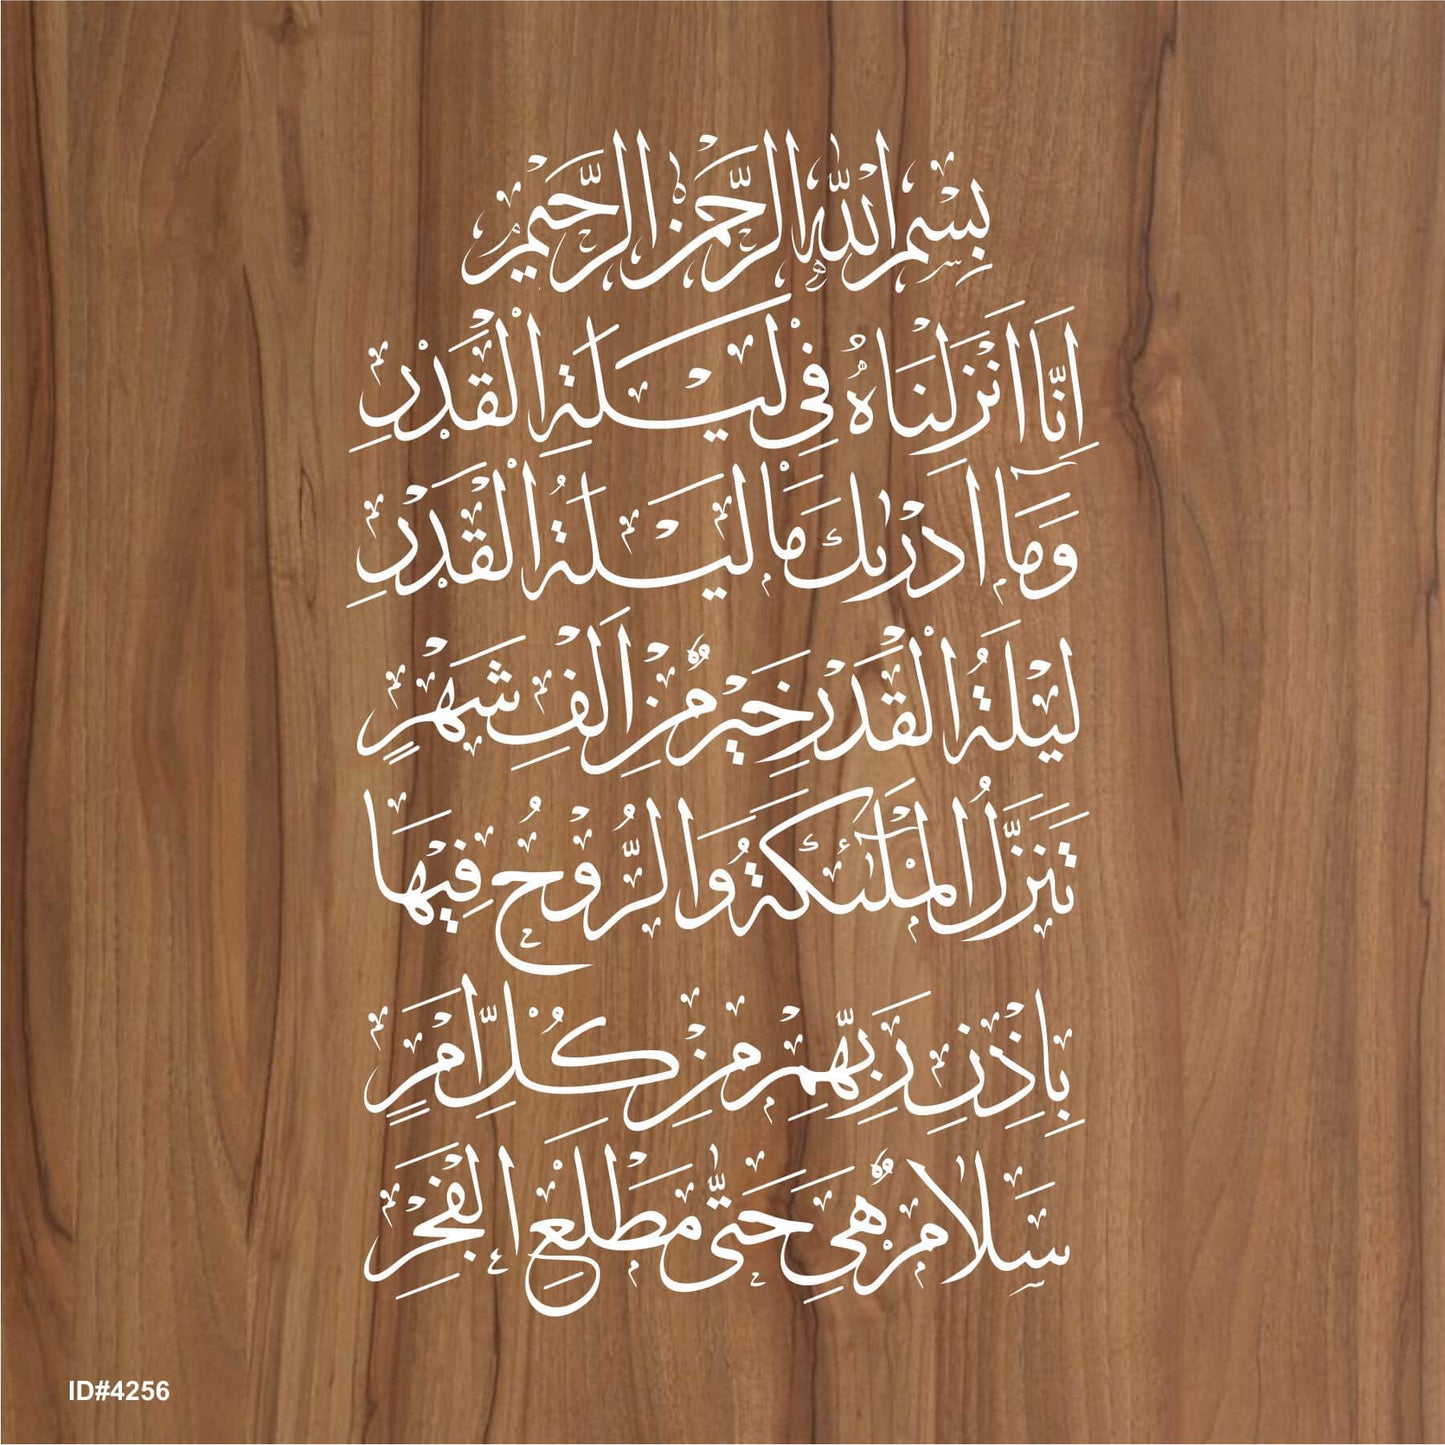 بِسْمِ اللّٰهِ الرَّحْمٰنِ الرَّحِيْمِ
اِنَّا اَنْزَلْنَاهُ فِيْ لَيْلَةِ الْقَدْرِ
وَمَآ اَدْرٰىكَ مَا لَيْلَةُ الْقَدْرِ
لَيْلَةُ الْقَدْرِ خَيْرٌ مِّنْ اَلْفِ شَهْرٍ
تَنَزَّلُ الْمَلٰٓئِكَةُ وَالرُّوْحُ فِيْهَا
بِاِذْنِ رَبِّهِمْ مِنْ كُلِّ اَمْرٍ
سَلَامٌ هِيَ حَتّٰى مَطْلَعِ الْفَجْرِ
ID#4256